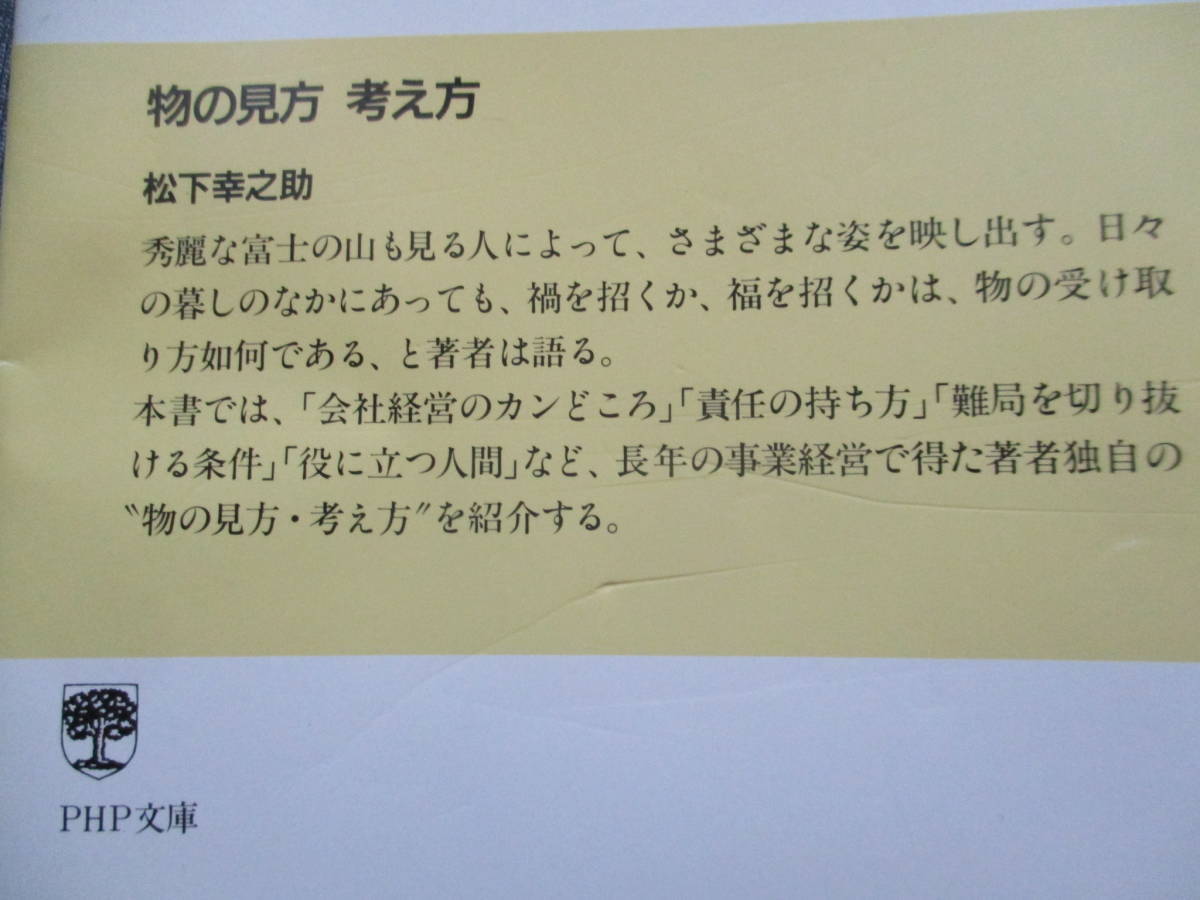 物の見方 考え方
松下幸之助
秀麗な富士の山も見る人によって、さまざまな姿を映し出す。日々
の暮しのなかにあっても、禍を招くか、福を招くかは、物の受け取
り方如何である、と著者は語る。
本書では、「会社経営のカンどころ」「責任の持ち方」「難局を切り抜
ける条件」「役に立つ人間」など、長年の事業経営で得た著者独自の
〝物の見方・考え方〟を紹介する。
PHP文庫